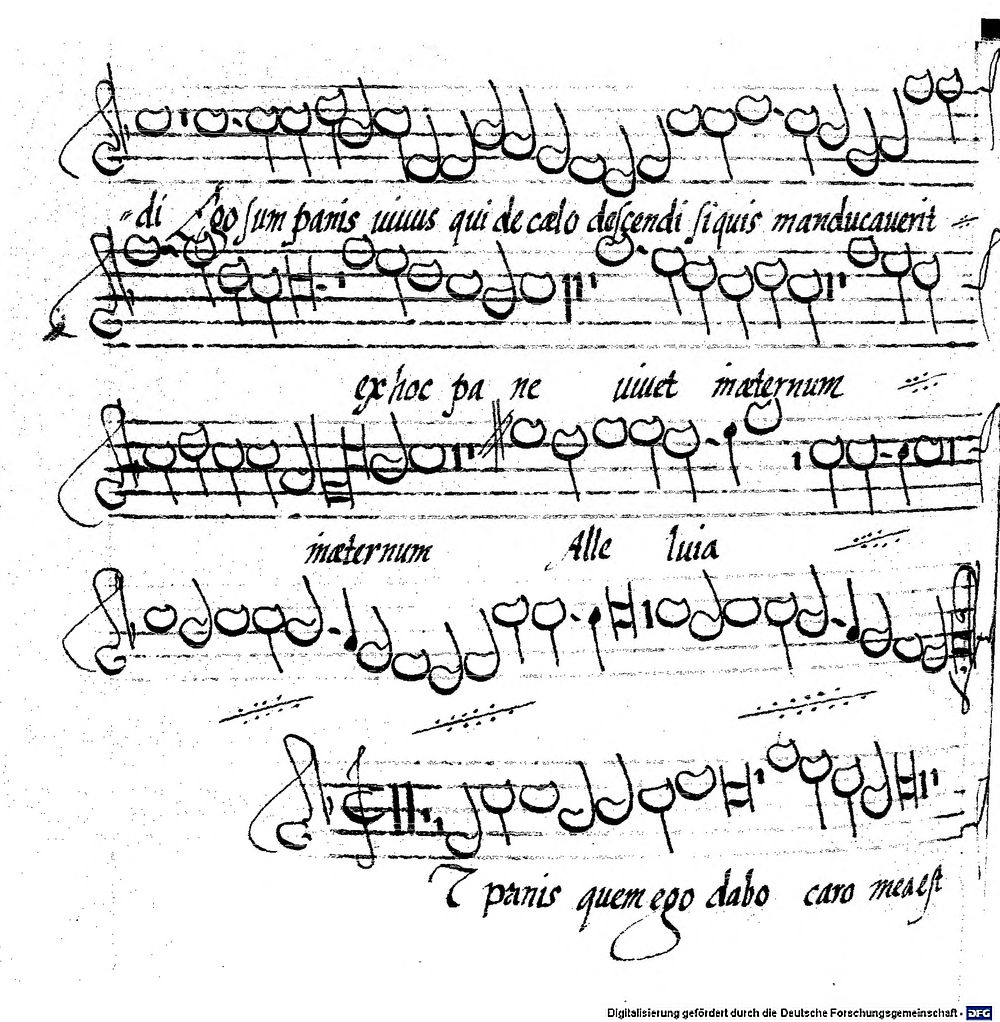 di Ego sum panis uiuus qui de cælo descendi si quis manducauerit
ex hoc pa ne uiuet inæternum
inæternum Alle luia
T panis quem ego dabo caro mea est
Digitalisierung gefördert durch die Deutsche Forschungsgemeinschaft - DFG